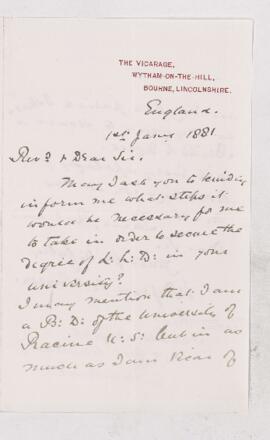 THE VICARAGE,
WYTHAM-ON-THE-HILL,
BOURNE, LINCOLNSHIRE.
England.
1st Jany 1881
Revd & Dear Sir.
May I ask you to kindly
inform me what steps it
would be necessary for me
to take in order to secure the
degree of L: L: D: in your
University?
I may mention that I am
a B: D: of the University of
Racine U: S: but in as
much as I am Vicar of